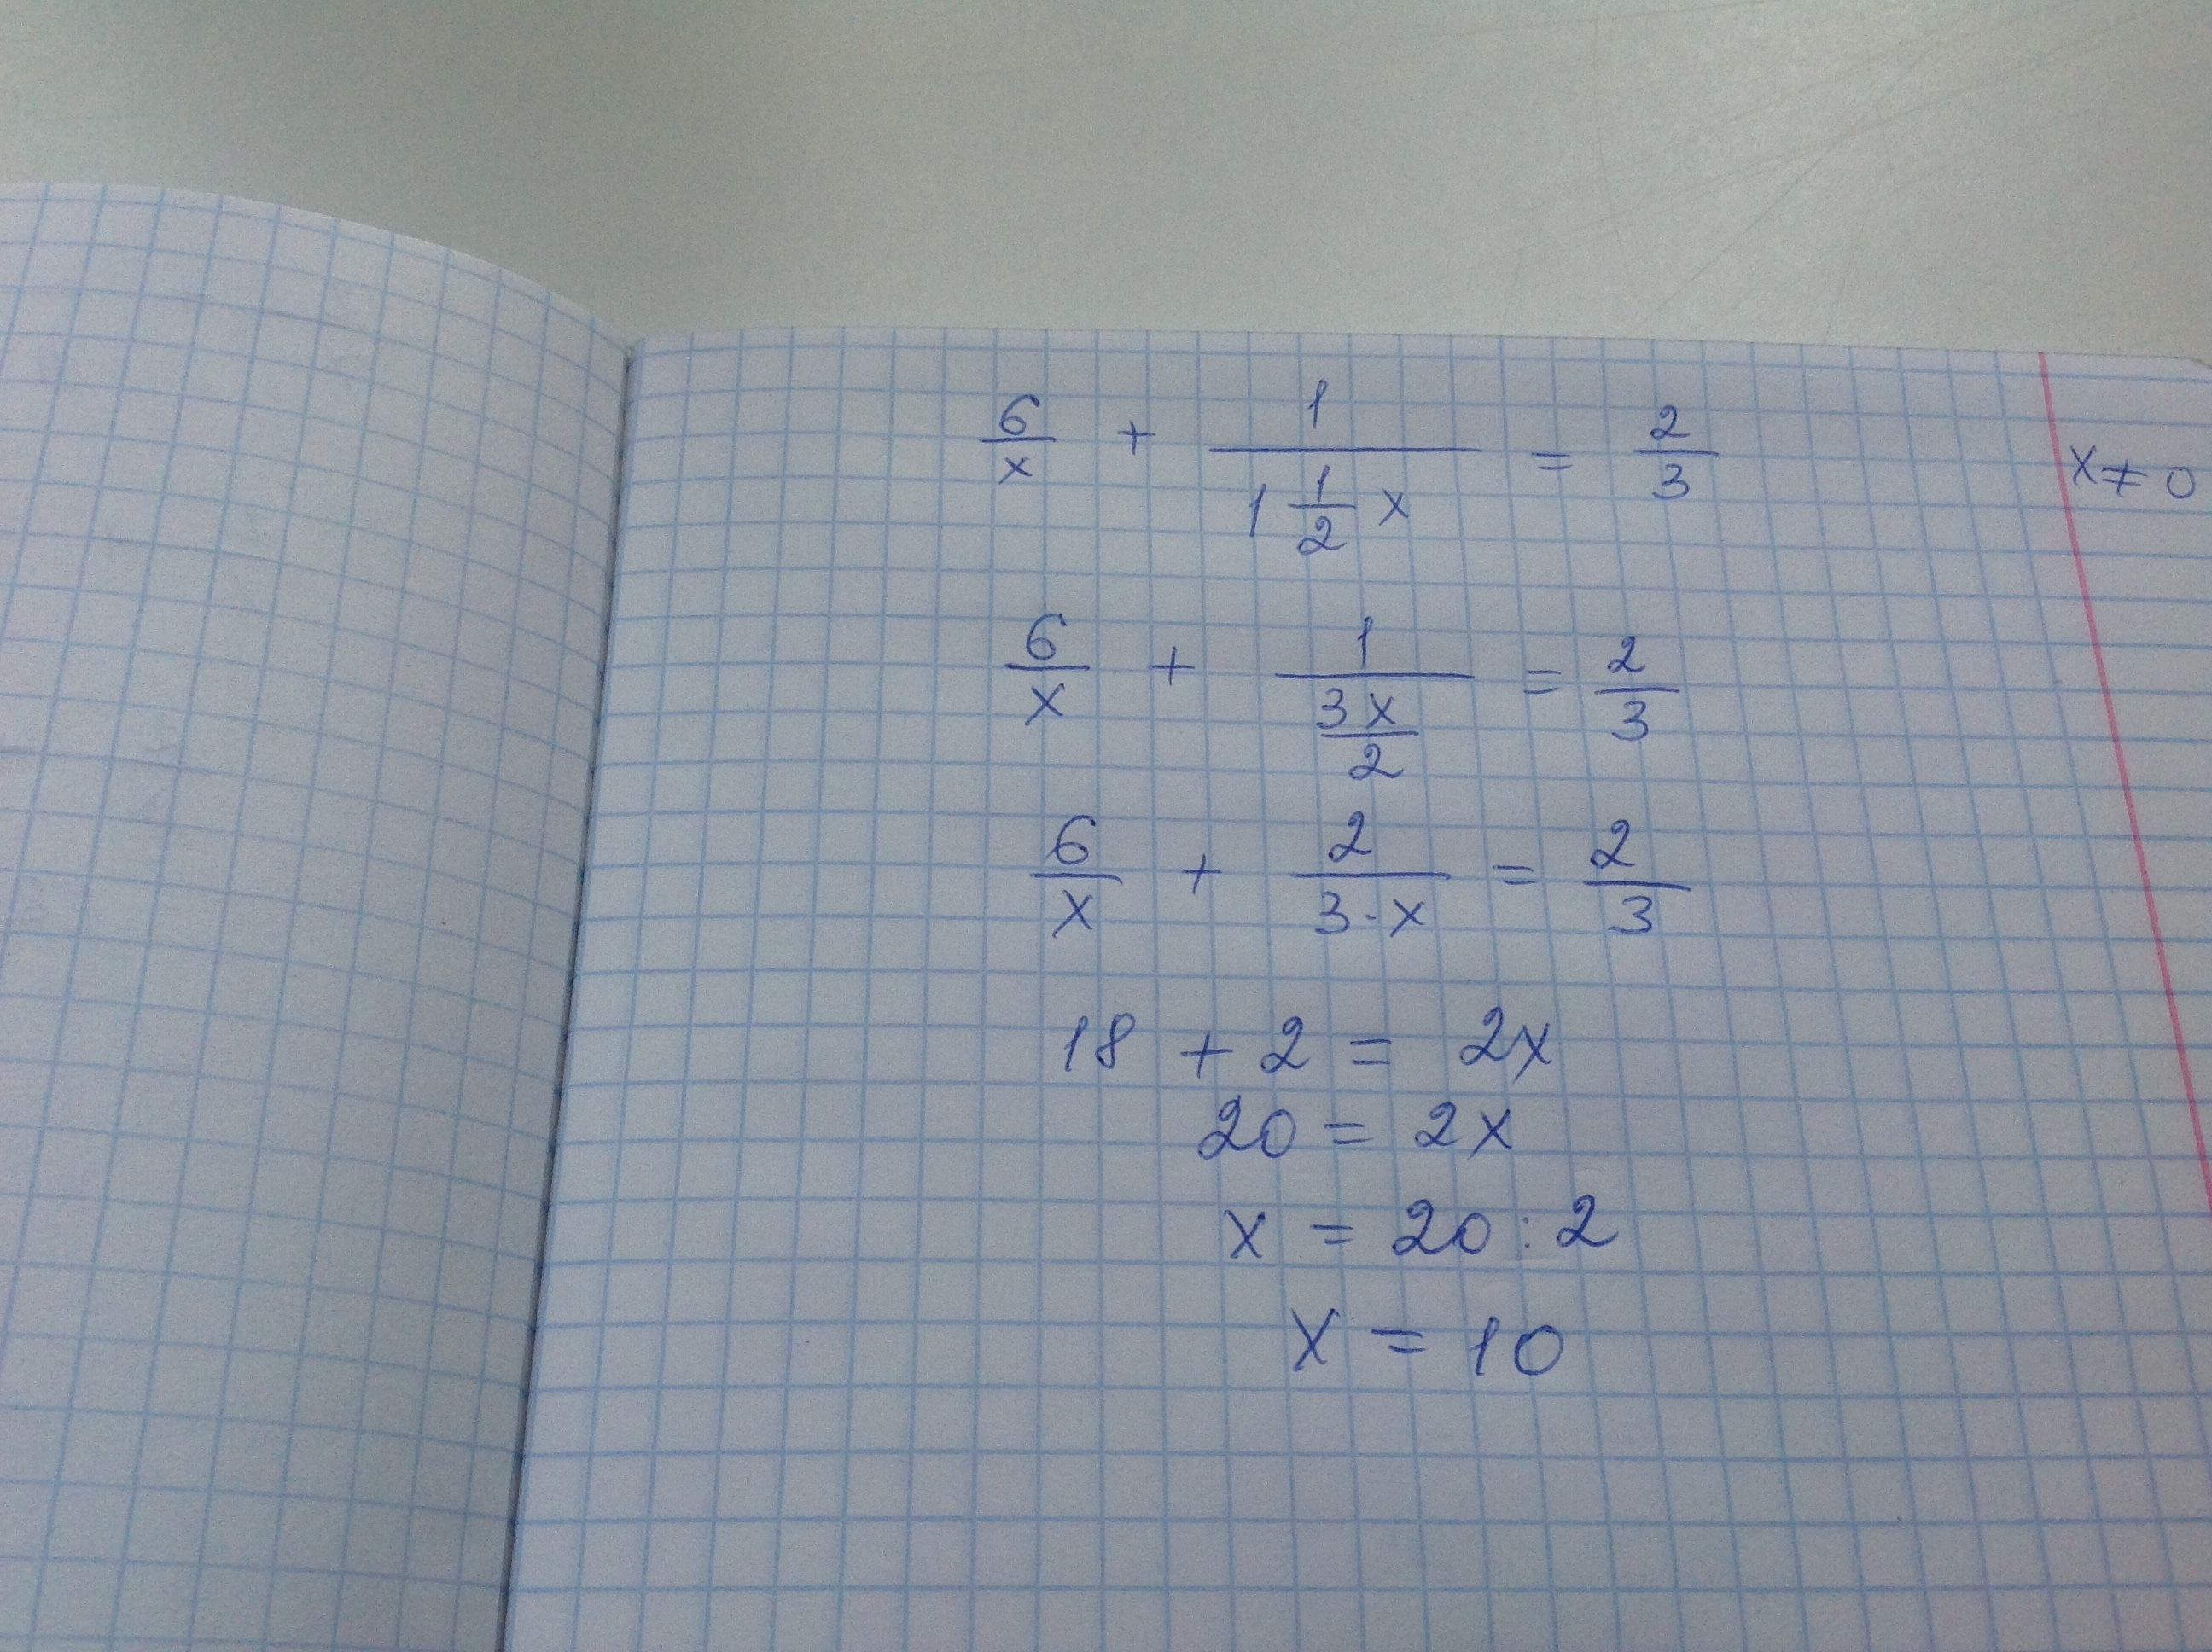 6/x + 1/(1 1/2 x) = 2/3 x ≠ 0
6/x + 1/(3x/2) = 2/3
6/x + 2/(3·x) = 2/3
18 + 2 = 2x
20 = 2x
x = 20 : 2
x = 10